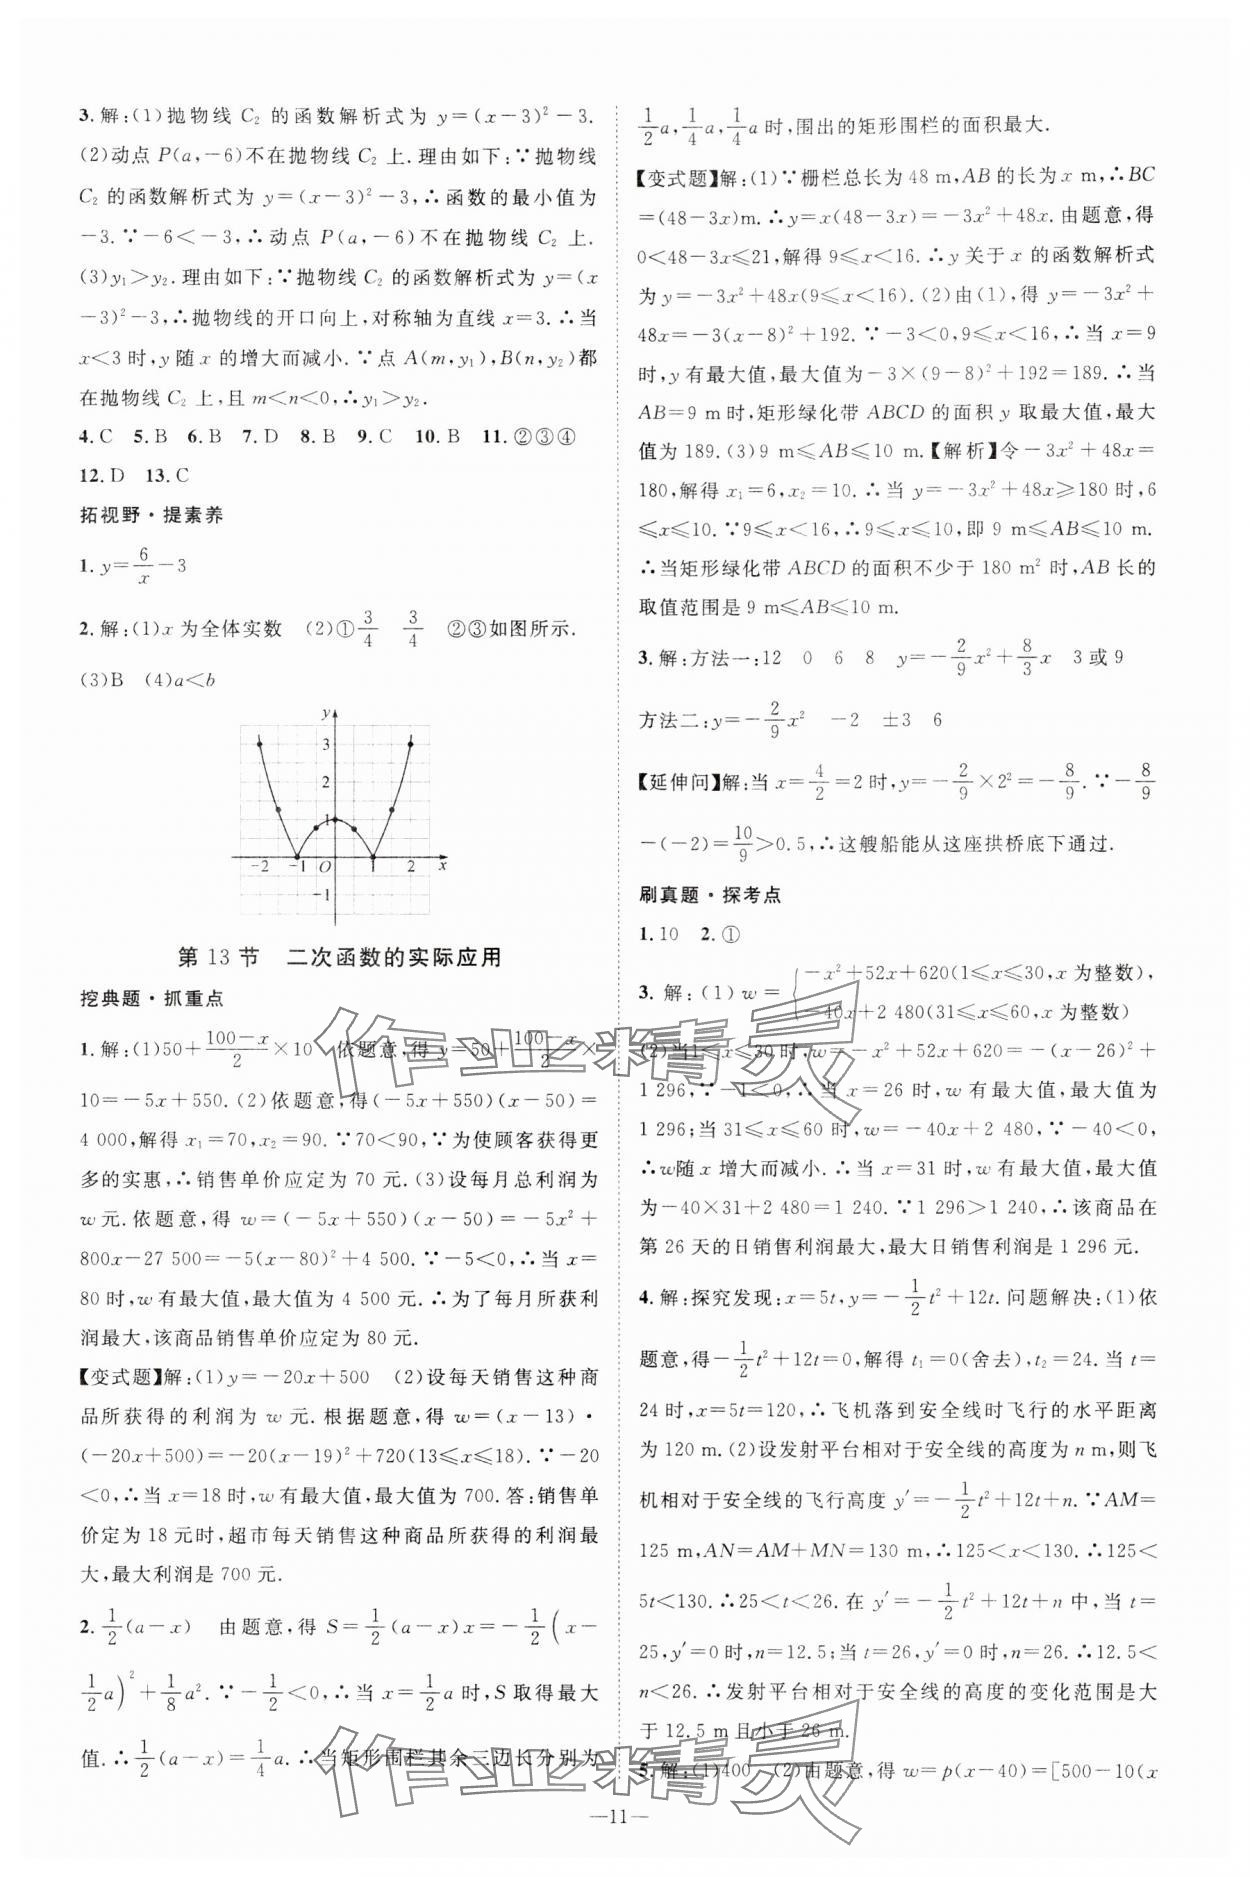 3.解:(1)抛物线 C₂ 的函数解析式为 y=(x-3)²-3.
(2)动点 P(a,-6)不在抛物线 C₂ 上.理由如下:∵抛物线
C₂ 的函数解析式为 y=(x-3)²-3,∴函数的最小值为
-3.∵-6<-3,∴动点 P(a,-6)不在抛物线 C₂ 上.
(3)y₁>y₂.理由如下:∵抛物线 C₂ 的函数解析式为 y=(x
-3)²-3,∴抛物线的开口向上,对称轴为直线 x=3.∴当
x<3 时,y 随 x 的增大而减小.∵点 A(m,y₁),B(n,y₂)都
在抛物线 C₂ 上,且 m<n<0,∴y₁>y₂.
4.C 5.B 6.B 7.D 8.B 9.C 10.B 11.②③④
12.D 13.C
拓视野·提素养
1.y=6/x-3
2.解:(1)x 为全体实数 (2)①3/4 3/4 ②③如图所示.
(3)B (4)a<b
y
3
2
1
-2 -1 O 1 2 x
-1
第 13 节 二次函数的实际应用
挖典题·抓重点
1.解:(1)50+(100-x)/2×10 依题意,得 y=50+(100-x)/2×
10=-5x+550.(2)依题意,得(-5x+550)(x-50)=
4 000,解得 x₁=70,x₂=90.∵70<90,∵为使顾客获得更
多的实惠,∴销售单价应定为 70 元.(3)设每月总利润为
w 元.依题意,得 w=(-5x+550)(x-50)=-5x²+
800x-27 500=-5(x-80)²+4 500.∵-5<0,∴当 x=
80 时,w 有最大值,最大值为 4 500 元.∴为了每月所获利
润最大,该商品销售单价应定为 80 元.
【变式题】解:(1)y=-20x+500 (2)设每天销售这种商
品所获得的利润为 w 元.根据题意,得 w=(x-13)·
(-20x+500)=-20(x-19)²+720(13≤x≤18).∵-20
<0,∴当 x=18 时,w 有最大值,最大值为 700.答:销售单
价定为 18 元时,超市每天销售这种商品所获得的利润最
大,最大利润是 700 元.
2.1/2(a-x) 由题意,得 S=1/2(a-x)x=-1/2(x-
1/2a)²+1/8a².∵-1/2<0,∴当 x=1/2a 时,S 取得最大
值.∴1/2(a-x)=1/4a.∴当矩形围栏其余三边长分别为
1/2a,1/4a,1/4a 时,围出的矩形围栏的面积最大.
【变式题】解:(1)∵栅栏总长为 48 m,AB 的长为 x m,∴BC
=(48-3x)m.∴y=x(48-3x)=-3x²+48x.由题意,得
0<48-3x≤21,解得 9≤x<16.∴y 关于 x 的函数解析式
为 y=-3x²+48x(9≤x<16).(2)由(1),得 y=-3x²+
48x=-3(x-8)²+192.∵-3<0,9≤x<16,∴当 x=9
时,y 有最大值,最大值为-3×(9-8)²+192=189.∴当
AB=9 m 时,矩形绿化带 ABCD 的面积 y 取最大值,最大
值为 189.(3)9 m≤AB≤10 m.【解析】令-3x²+48x=
180,解得 x₁=6,x₂=10.∴当 y=-3x²+48x≥180 时,6
≤x≤10.∵9≤x<16,∴9≤x≤10,即 9 m≤AB≤10 m.
∴当矩形绿化带 ABCD 的面积不少于 180 m² 时,AB 长的
取值范围是 9 m≤AB≤10 m.
3.解:方法一:12 0 6 8 y=-2/9x²+8/3x 3 或 9
方法二:y=-2/9x² -2 ±3 6
【延伸问】解:当 x=4/2=2 时,y=-2/9×2²=-8/9.∵-8/9
-(-2)=10/9>0.5,∴这艘船能从这座拱桥底下通过.
刷真题·探考点
1.10 2.①
3.解:(1)w={-x²+52x+620(1≤x≤30,x 为整数),
-40x+2 480(31≤x≤60,x 为整数)
(2)当1≤x≤30 时,w=-x²+52x+620=-(x-26)²+
1 296,∵-1<0,∴当 x=26 时,w 有最大值,最大值为
1 296;当 31≤x≤60 时,w=-40x+2 480,∵-40<0,
∴w随 x 增大而减小.∴当 x=31 时,w 有最大值,最大值
为-40×31+2 480=1 240.∵1 296>1 240,∴该商品在
第 26 天的日销售利润最大,最大日销售利润是 1 296 元.
4.解:探究发现:x=5t,y=-1/2t²+12t.问题解决:(1)依
题意,得-1/2t²+12t=0,解得 t₁=0(舍去),t₂=24.当 t=
24 时,x=5t=120,∴飞机落到安全线时飞行的水平距离
为 120 m.(2)设发射平台相对于安全线的高度为 n m,则飞
机相对于安全线的飞行高度 y′=-1/2t²+12t+n.∵AM=
125 m,AN=AM+MN=130 m,∴125<x<130.∴125<
5t<130.∴25<t<26.在 y′=-1/2t²+12t+n 中,当 t=
25,y′=0 时,n=12.5;当 t=26,y′=0 时,n=26.∴12.5<
n<26.∴发射平台相对于安全线的高度的变化范围是大
于 12.5 m且小于 26 m.
5.解:(1)400 (2)由题意,得 w=p(x-40)=[500-10(x
作业精灵
作业精灵
—11—